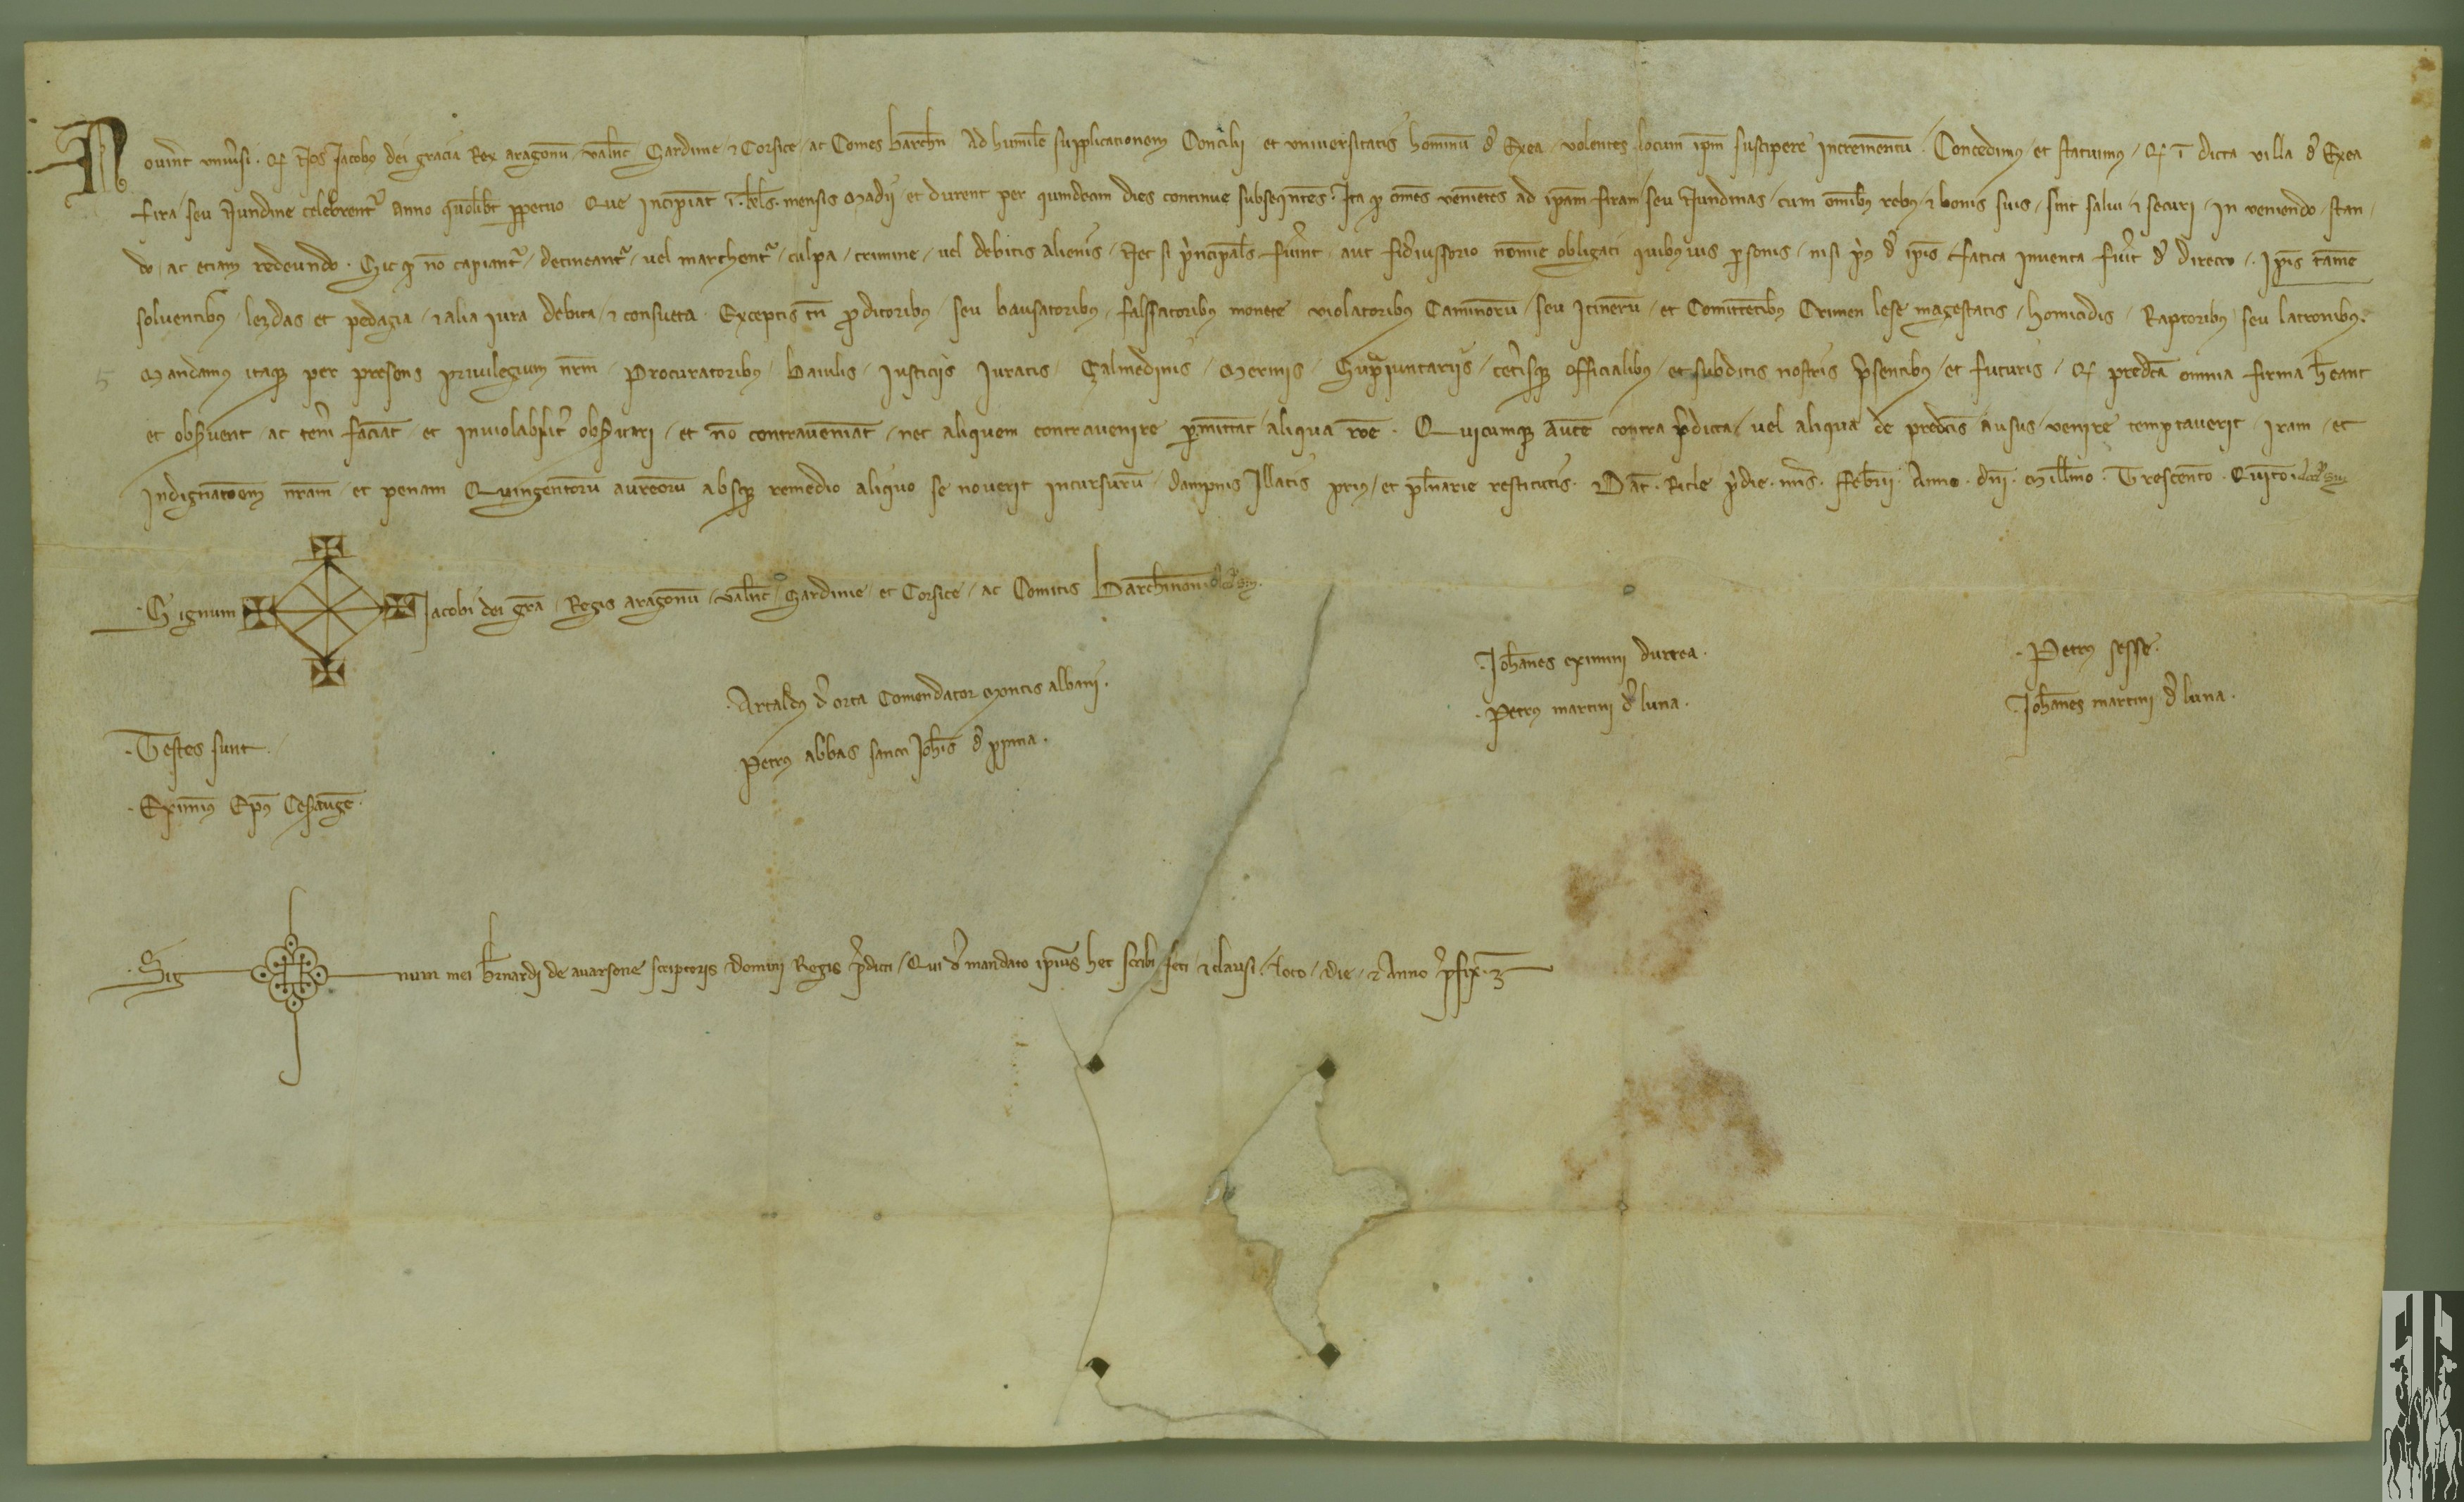 Noverint universi · qd Nos Jacobus dei gracia Rex aragonū / valn̄c Sardinie / ⁊ Corsice / ac Comes barchn̄ / Ad humilē supplicationem Concilij et universitatis hominū d' Exea / volentes locum ipm̄ suscipere incrementū / Concedimꝰ / et statuimꝰ / qd ī dicta villa d' Exea
fira / seu Nundine celebrentr̄ anno quolibt ꝑpetuo Que incipiāt ī · kl̄s · mensis Madij / et durent per quindecim dies continue subseqn̄tes · Ita qd om̄es veniētes ad ipam̄ firam / seu Nundinas / cum om̄ibꝰ rebꝰ / ⁊ bonis suis / sint salvi ⁊ securi / in veniendo / stan
do / ac etiam redeundo · Sic qd nō capiantr̄ / detineantr̄ / vel marchentr̄ / culpa / crimine / vel debitis alienis / Nec si p'ncipal̄s fuīnt / aut fid'iussorio nomīe obligati quibꝰvis ꝑsonis / nisi p'ꝰ d' ip̄is fatica inventa fuīt d' directo / Ip̄is tamē
solventibꝰ lezdas et pedagia / ⁊ alia iura debita / ⁊ consueta · Exceptis tn̄ ꝓditoribꝰ / seu bausatoribꝰ / falssatoribꝰ monete violatoribꝰ Caminorū / seu Itinerū / et Comittētibꝰ Crimen lese magestatis / homicidis / Raptoribꝰ seu latronibꝰ ·
5 Mandamꝰ itaqꝫ per presens privilegium nr̄m / Procuratoribꝰ / Baiulis / Iusticijs Iuratis / Çalmedinis / Merinis / Supraiuntarijs / cet'isqꝫ officialibꝰ / et subditis nostris p'sentibꝰ / et futuris / qd predc̄a omnia firma hēant
et obs'vent / ac tenī faciāt / et inviolabilit' obs'vari / et nō contraveniāt / nec aliquem contravenire ꝑmittāt aliqua rōe · Quicumqꝫ autē contra p'dicta / vel aliqua de predc̄is ausus / venire temptaverit / iram / et
indignatōem nr̄am / et penam Quingentorū aureorū absqꝫ remedio aliquo se noverit incursurū / dampnis illatis prius / et pl̄narie restitutis · Dāt · Ricle p'die · nōs · Febrii · Anno · dn̄i · Mill̄mo · Trescento · Quīto
· Signum Iacobi dei grā / Regis aragonū / valn̄c / Sardinie / et Corsice / ac Comitis Barchinoni
· Testes sunt ·
· Eximinꝰ Ep̄s Cesaugē ·
· Artaldꝰ d' orta Comendator Montis albani ·
Petrꝰ abbas sancti Joh̄is d' pinna ·
· Joh̄anes eximini durrea ·
· Petrꝰ martini d' luna ·
· Petrꝰ sesse ·
· Joh̄anes martini d' luna ·
· Sig num mei b'rnardi de aversone scriptoris domini Regis p'dicti / Qui d' mandato ip̄ius hec scribi feci / ⁊ clausi / loco / die / ⁊ Anno p'fix ·